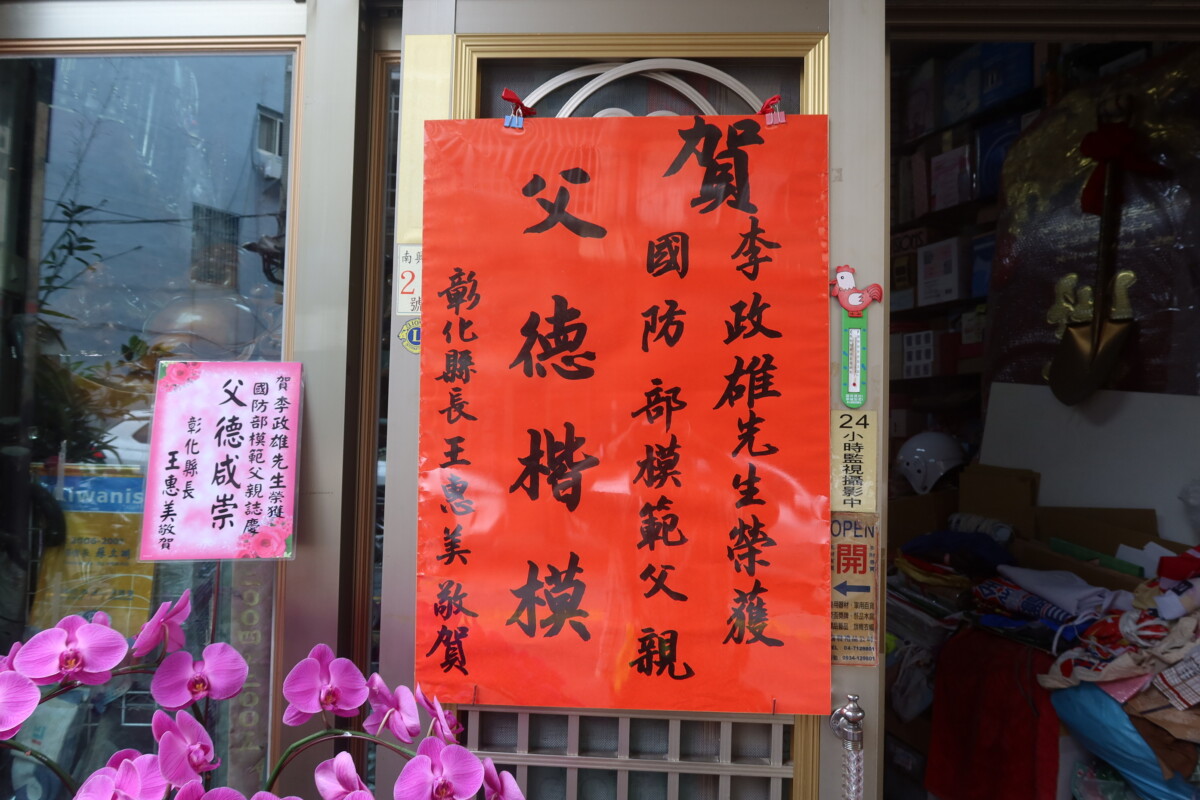 賀李政雄先生榮獲
國防部模範父親
父德楷模
彰化縣長王惠美敬賀
賀李政雄先生榮獲
國防部模範父親誌慶
父德咸崇
彰化縣長
王惠美敬賀
南興
2
號
24
小時監視攝影中
OPEN
開
iwanis